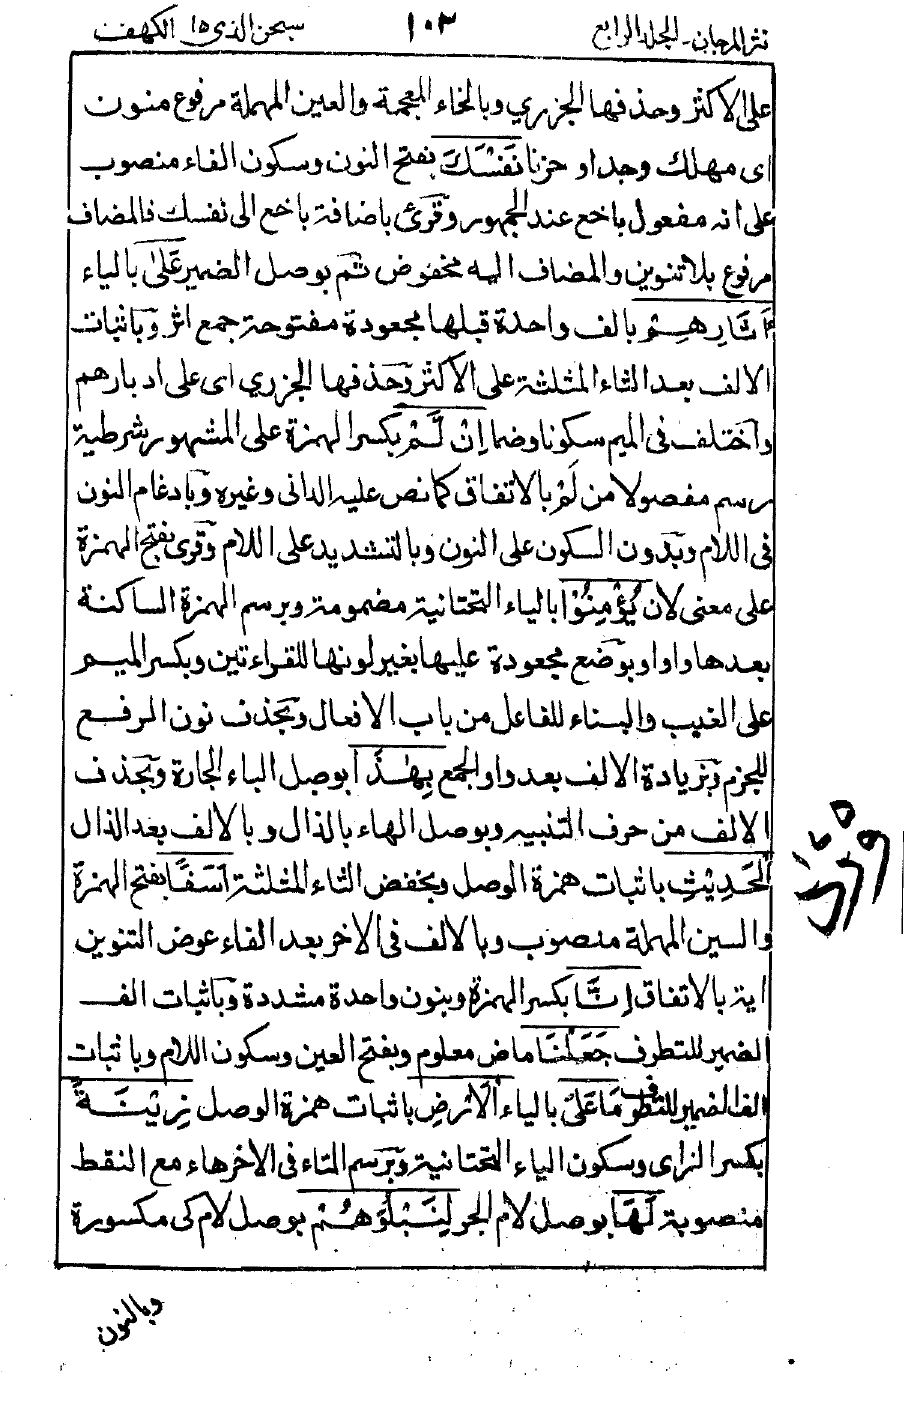 نثر المرجان ـ الجلد الرابع ١٠٣ سبحن الذى ١٥ الكهف
على الاكثر وحذفها الجزرى وبالخاء المعجمة والعين المهملة مرفوع منون
اى مهلك وجدا و حزنا نَفْسَكَ بفتح النون وسكون الفاء منصوب
على انه مفعول باخع عند الجمهور وقرئ باضافة باخع الى نفسك فالمضاف
مرفوع بلا تنوين والمضاف اليه مخفوض ثم بوصل الضمير عَلَىٰ بالياء
اٰثَارِهِمْ بالف واحدة قبلها مجعودة مفتوحة جمع اثر وباثبات
الالف بعد الثاء المثلثة على الاكثر وحذفها الجزري اى على ادبارهم
واختلف فى الميم سكونا وضما اِنْ لَّمْ بكسر الهمزة على المشهور شرطية
رسم مفصولا من لَمْ بالاتفاق كما نص عليه الدانى وغيره وبادغام النون
فى اللام وبدون السكون على النون وبالتشديد على اللام وقرئ بفتح الهمزة
على معنى لان يُؤْمِنُوْا بالياء التحتانية مضمومة وبرسم الهمزة الساكنة
بعدها واوا وبوضع مجعودة عليها بغير لونها للقراءتين وبكسر الميم
على الغيب والبناء للفاعل من باب الافعال وبحذف نون الرفع
للجزم وبزيادة الالف بعد واو الجمع بِهٰذَا بوصل الباء الجارة وبحذف
الالف من حرف التنبيه وبوصل الهاء بالذال و بالالف بعد الذال
الْحَدِيْثِ باثبات همزة الوصل وبخفض الثاء المثلثة اَسَفًا بفتح الهمزة
والسين المهملة منصوب وبالالف فى الاخر بعد الفاء عوض التنوين
اية بالاتفاق اِنَّا بكسر الهمزة وبنون واحدة مشددة وباثبات الف
الضمير للتطرف جَعَلْنَا ماض معلوم وبفتح العين وسكون اللام وباثبات
الف الضمير للتطرف مَا عَلَى بالياء الْاَرْضِ باثبات همزة الوصل زِيْنَةً
بكسر الزاى وسكون الياء التحتانية وبرسم التاء فى الاخر هاء مع النقط
منصوبة لَّهَا بوصل لام الجر لِنَبْلُوَهُمْ بوصل لام كى مكسورة
وبالنون